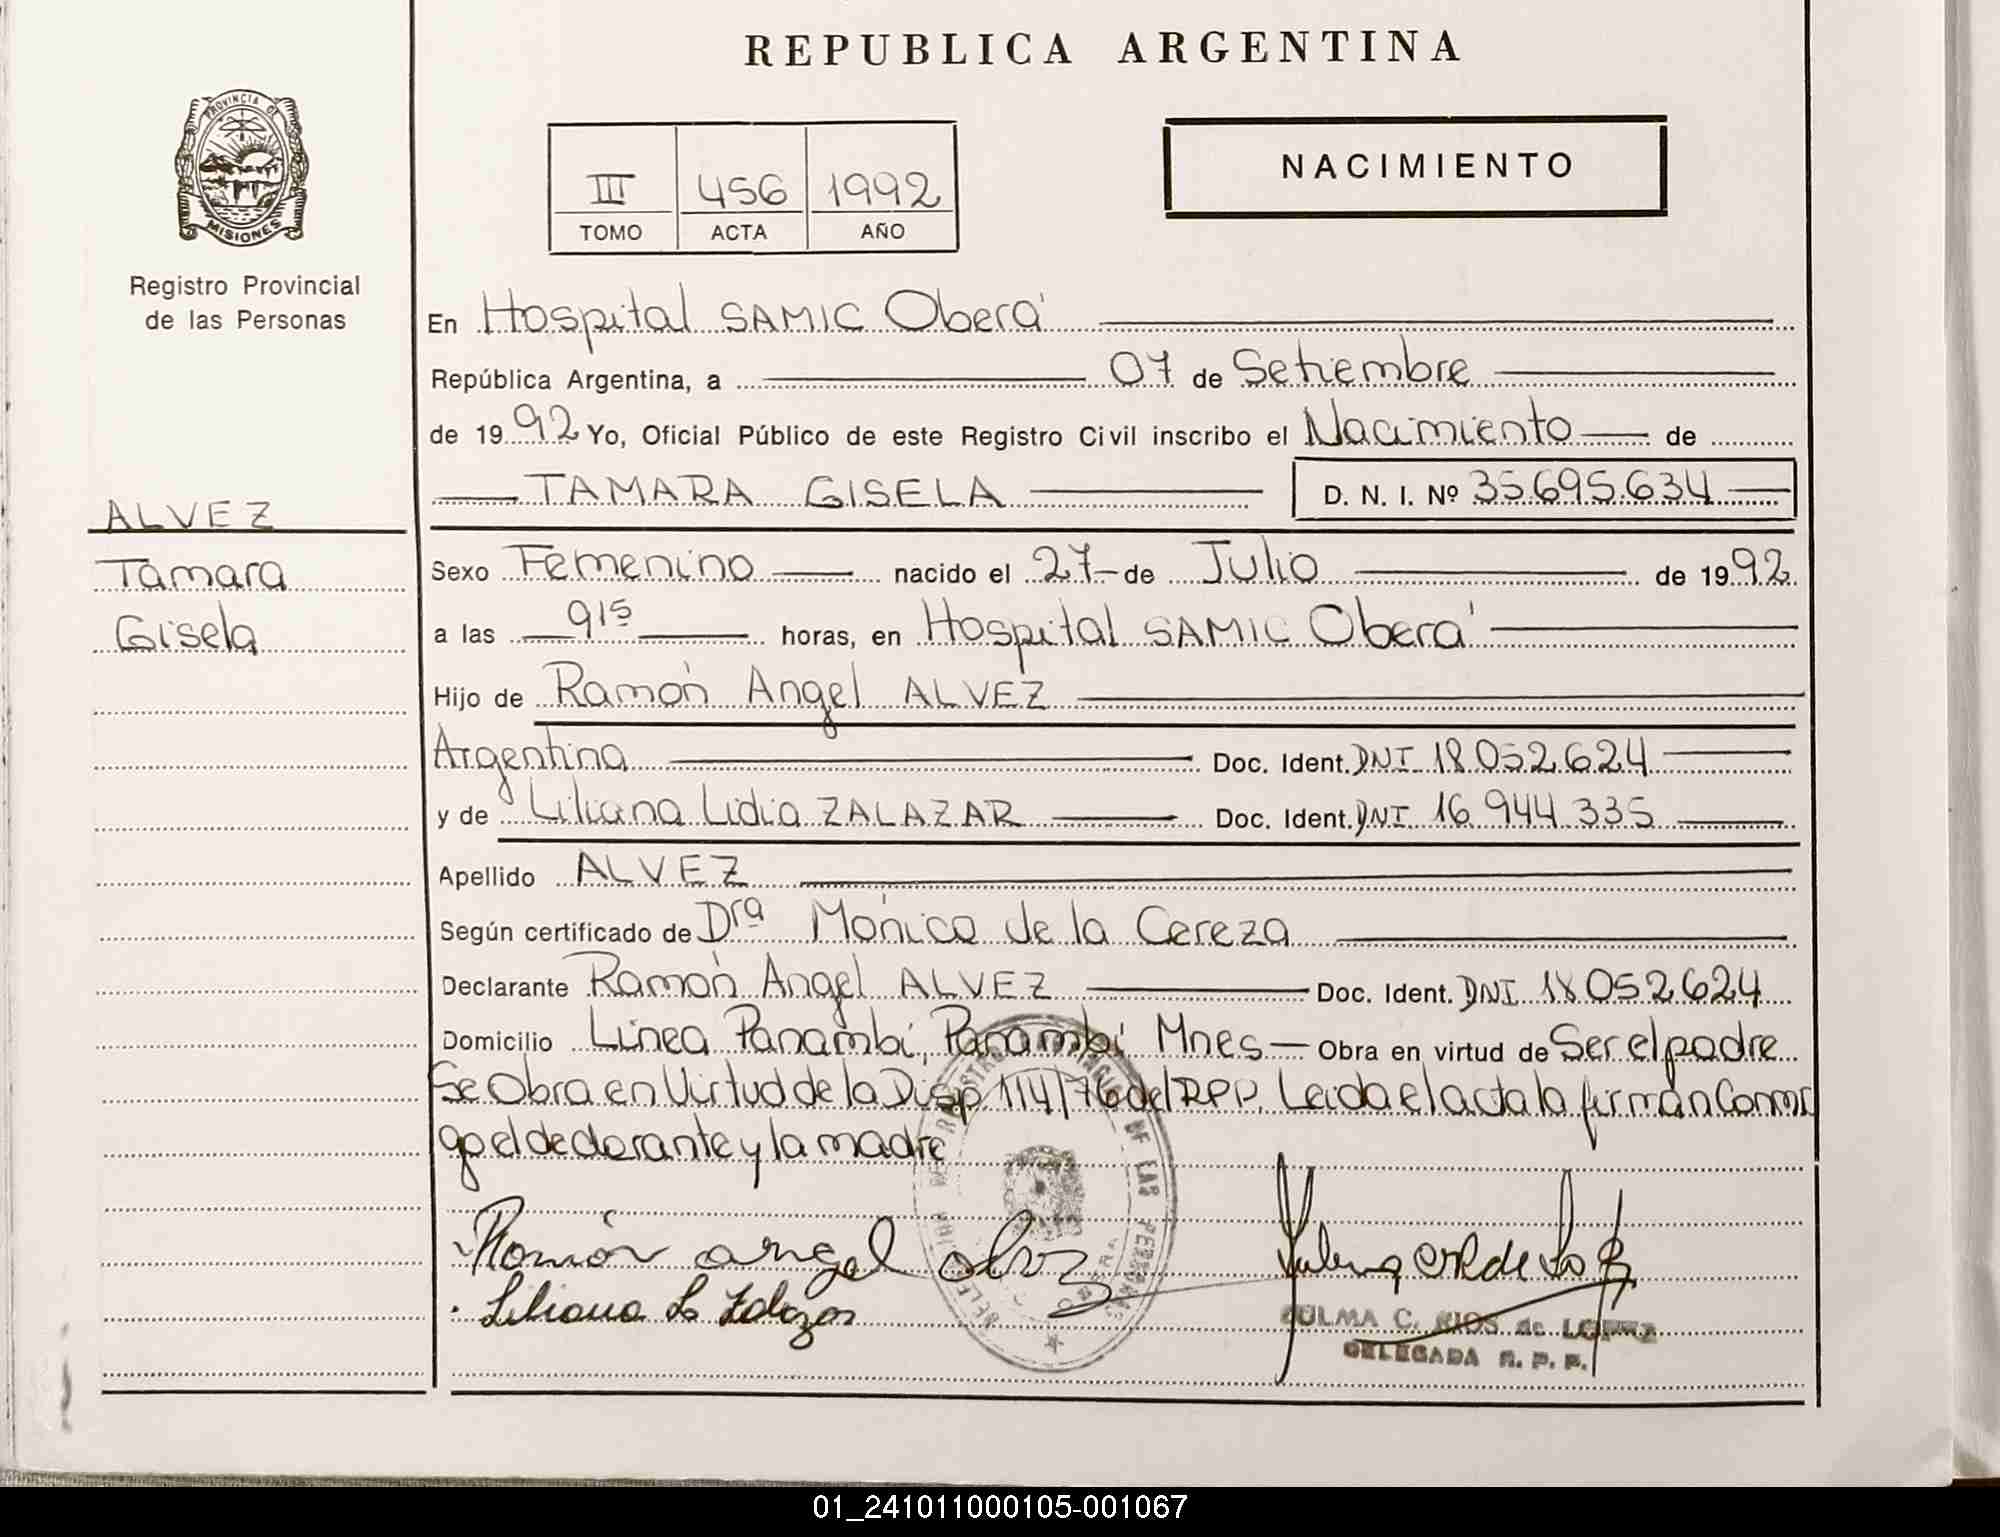 REPUBLICA ARGENTINA
PROVINCIA DE
MISIONES
Registro Provincial
de las Personas
III 456 1992
TOMO ACTA AÑO
NACIMIENTO
En Hospital SAMIC Oberá
República Argentina, a 07 de Setiembre
de 1992 Yo, Oficial Público de este Registro Civil inscribo el Nacimiento de
TAMARA GISELA D. N. I. Nº 35.695.634
ALVEZ
Tamara
Gisela
Sexo Femenino nacido el 27 de Julio de 1992
a las 915 horas, en Hospital SAMIC Oberá
Hijo de Ramón Angel ALVEZ
Argentina Doc. Ident. DNI 18.052.624
y de Liliana Lidia ZALAZAR Doc. Ident. DNI 16.944.335
Apellido ALVEZ
Según certificado de Dra Mónica de la Cereza
Declarante Ramón Angel ALVEZ Doc. Ident. DNI 18.052.624
Domicilio Línea Panambí, Panambí Mnes Obra en virtud de Ser el padre
Se Obra en Virtud de la Disp. 114/76 del RPP. Leida el acta la firman Conmi
go el declarante y la madre
Ramón angel alvez
Liliana L Zalazar
ZULMA C. RIOS de LOPEZ
DELEGADA R. P. P.
DE LAS PERSONAS
01_241011000105-001067